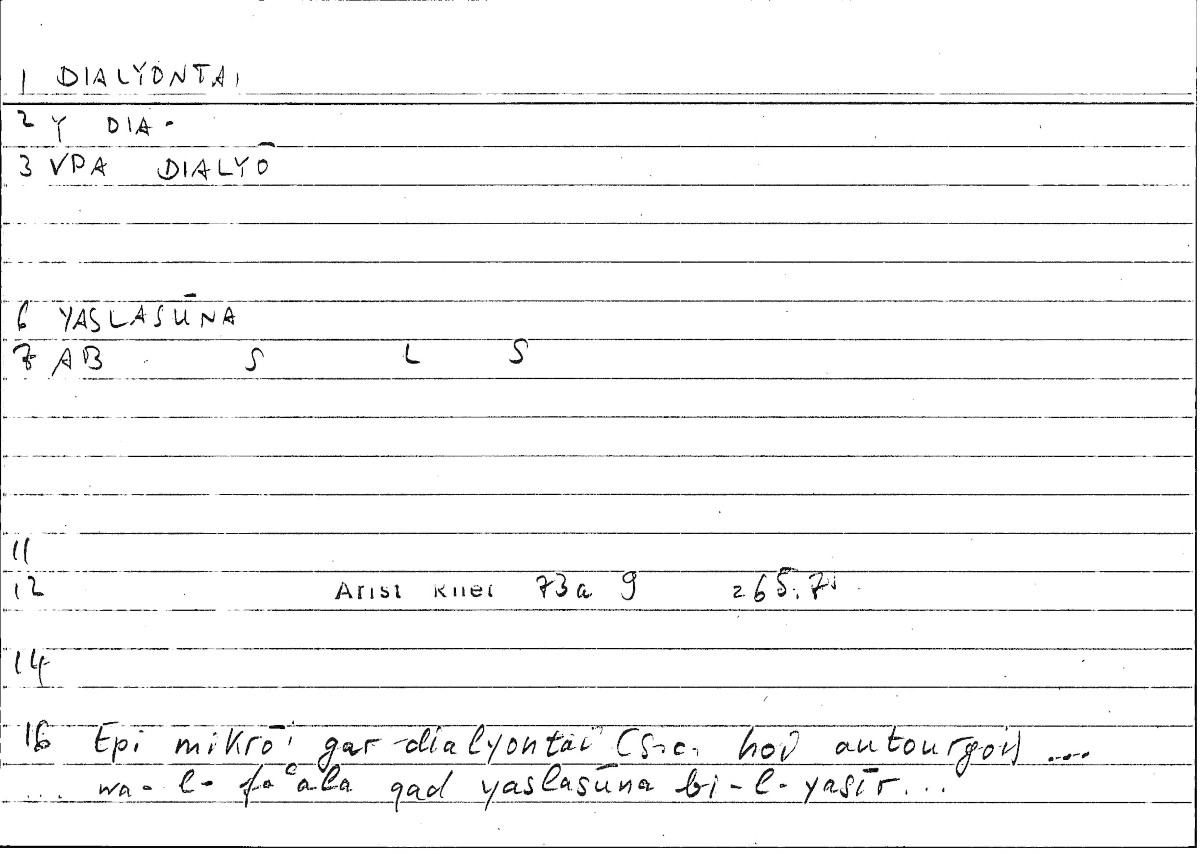 1 DIALYONTAI
2 Y DIA-
3 VPA DIALYŌ
6 YASLASŪNA
7 AB S L S
11
12 Arist Rhet 73a 9 265.7
14
16 Epi mikrōi gar dialyontai (s.c. hoi autourgoi) ...
... wa-l-faʿala qad yaslasūna bi-l-yasīr...